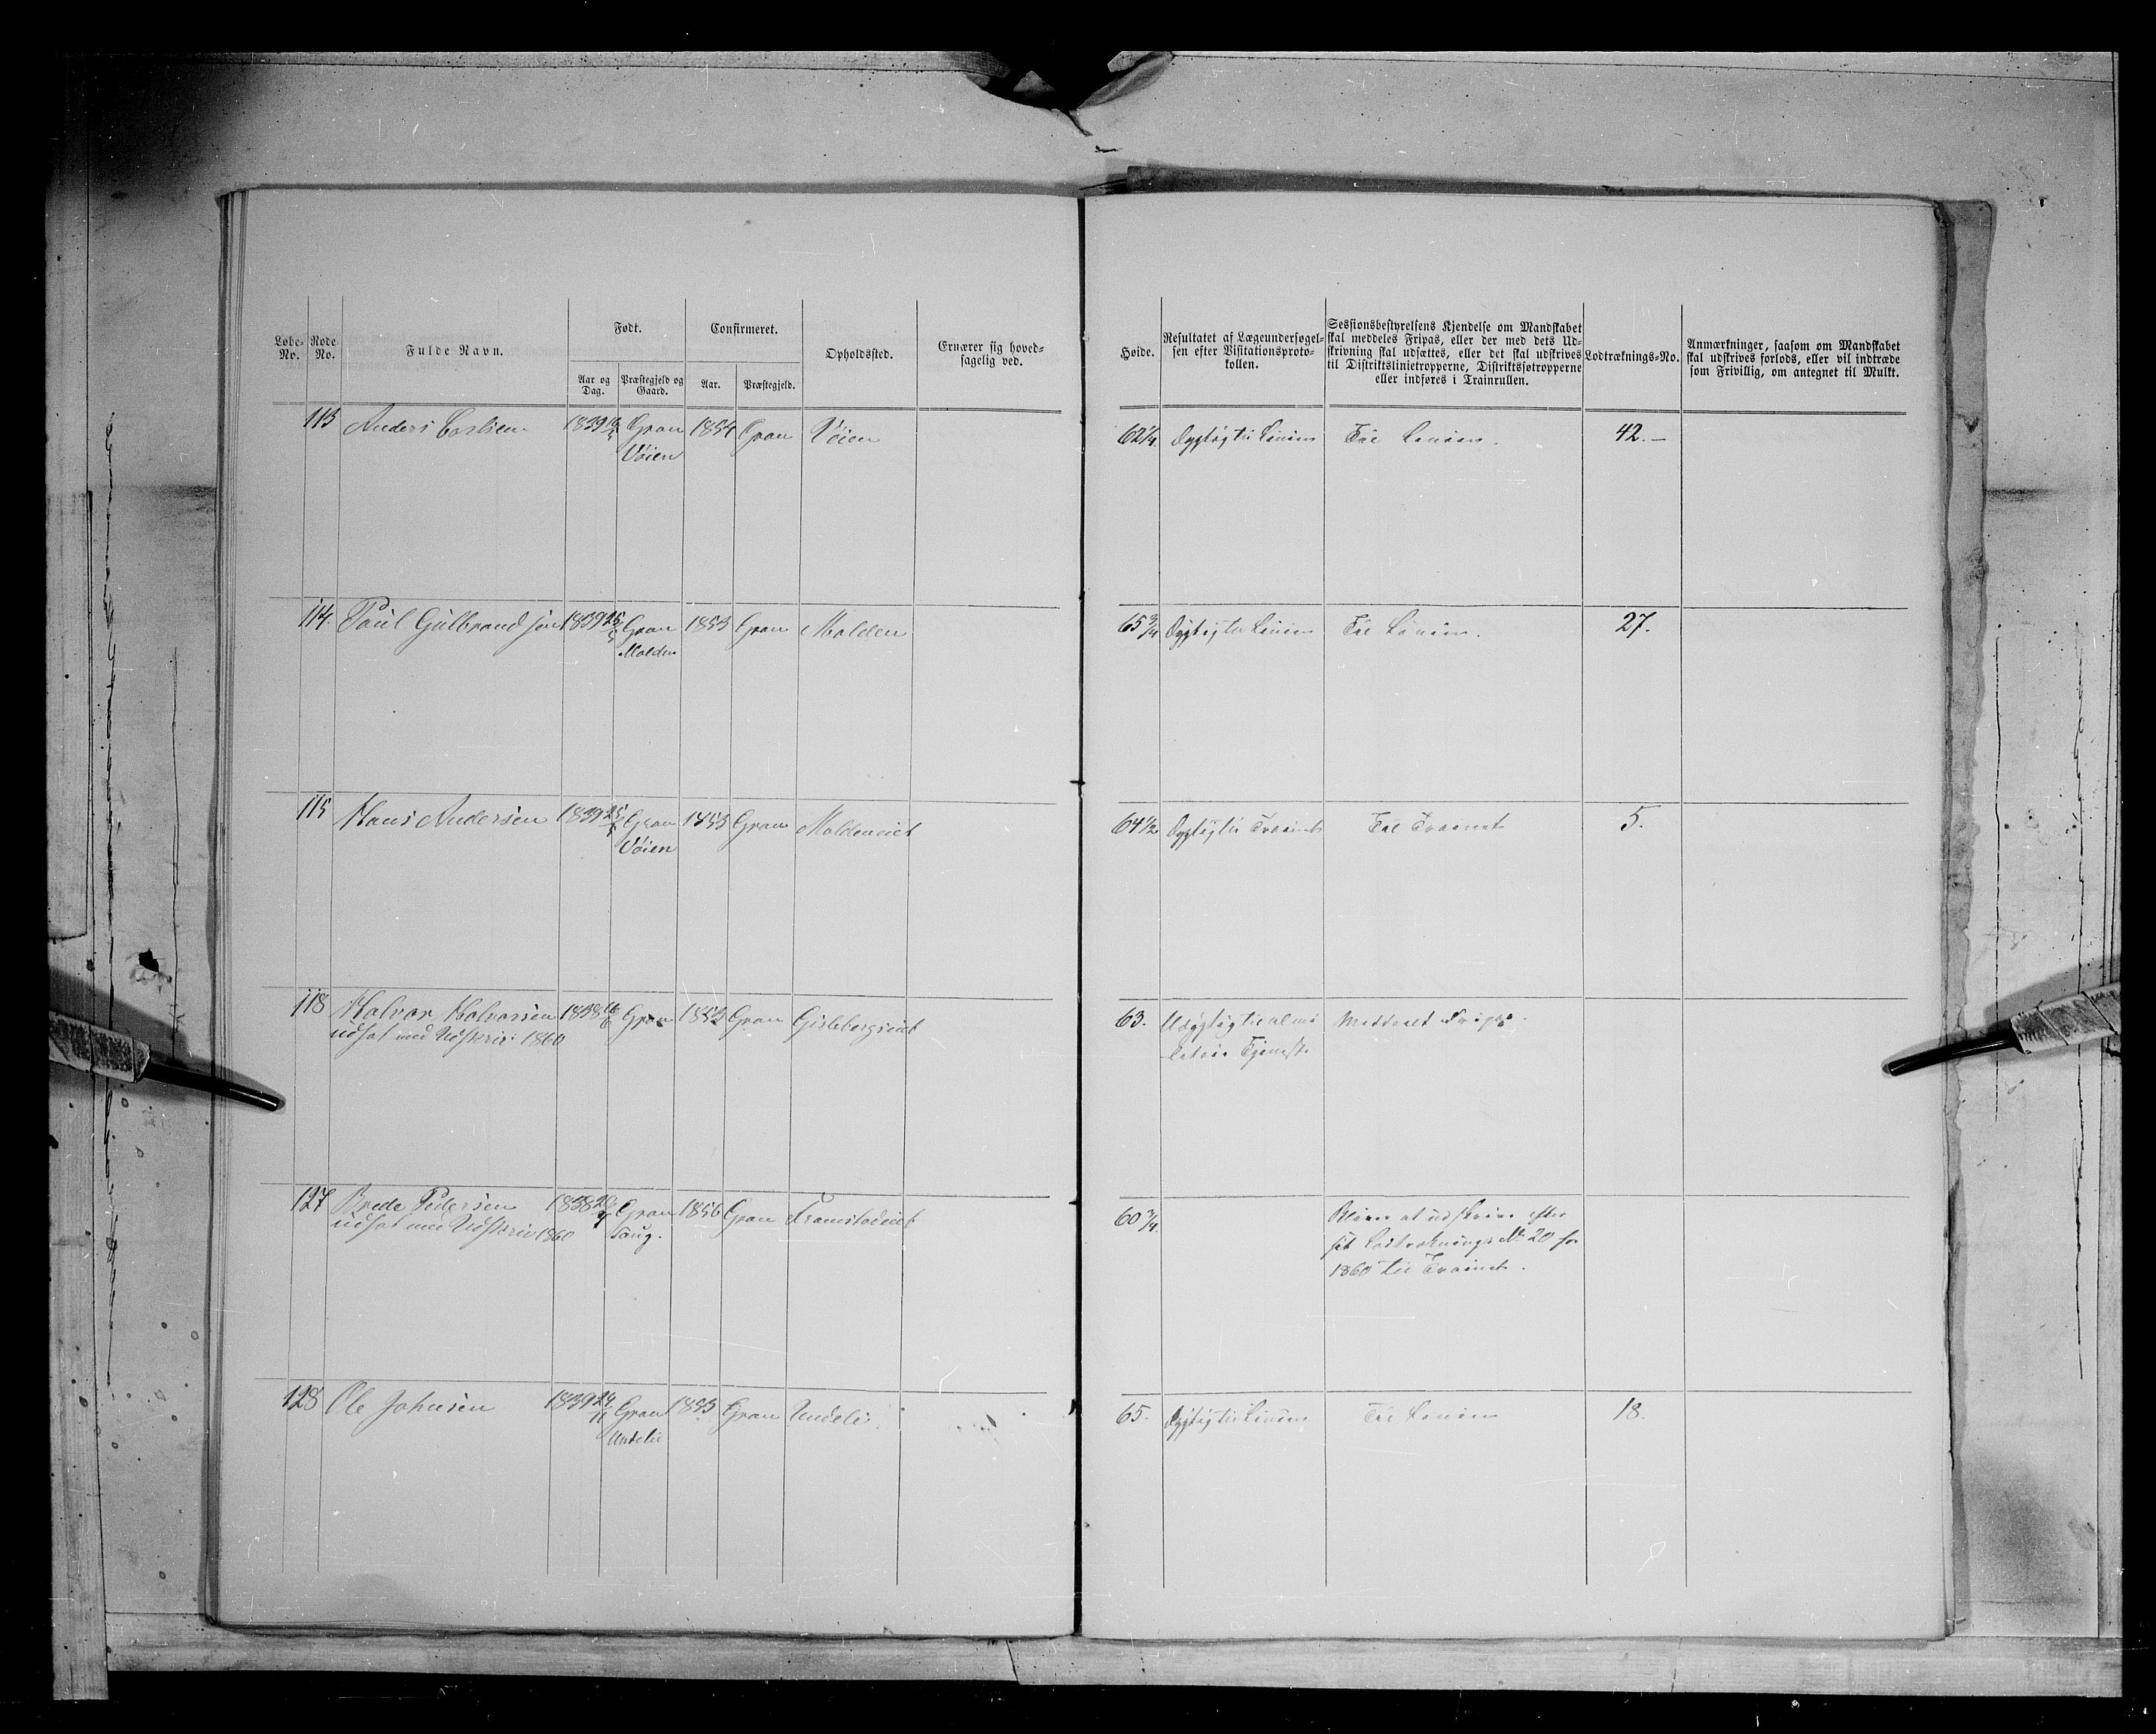 Løbe-No.
Rode No.
Fulde Navn.
Født.
Aar og Dag.
Præstegjeld og Gaard.
Confirmeret.
Aar.
Præstegjeld.
Opholdssted.
Ernærer sig hoved-
sagelig ved.
Høide.
Resultatet af Lægeundersøgel-
sen efter Visitationsproto-
kollen.
Sessionsbestyrelsens Kjendelse om Mandskabet
skal meddeles Fripas, eller der med dets Ud-
skrivning skal udsættes, eller det skal udskrives
til Distriktslinietropperne, Distriktssøtropperne
eller indføres i Trainrullen.
Lodtræknings-No.
Anmærkninger, saasom om Mandskabet
skal udskrives forlods, eller vil indtræde
som Frivillig, om antegnet til Mulkt.
113 Anders 1839 Gran 1854 Gran Vøien 62 1/4 Dygtig til Linien Til Linien. 42.
Vøien
114. Paul Gulbrandsen 1839 Gran 1853 Gran Molden 65 3/4 Dygtig til Linien Til Linien. 27.
Molden
115 Hans Andersen 1839 Gran 1853 Gran Moldeneiet 64 1/2 Dygtig til Trainet Til Trainet 5.
Vøien
118 Halvor Halvorsen 1838 Gran 1853 Gran Gislebergseiet 63. Udygtig til al mi- Meddeelt Fripas.
udsat med Udskriv: 1860 litair Tjeneste
127 Brede Pedersen 1838 Gran 1856 Gran Framstadeiet 60 3/4 Bliver at udskrive efter
udsat med Udskriv 1860 sit Lodtræknings No 20 for
1860 til Trainet.
128 Ole Johnsen 1839 Gran 1853 Gran Undeli 65. Dygtig til Linien Til Linien 18.
Undelie